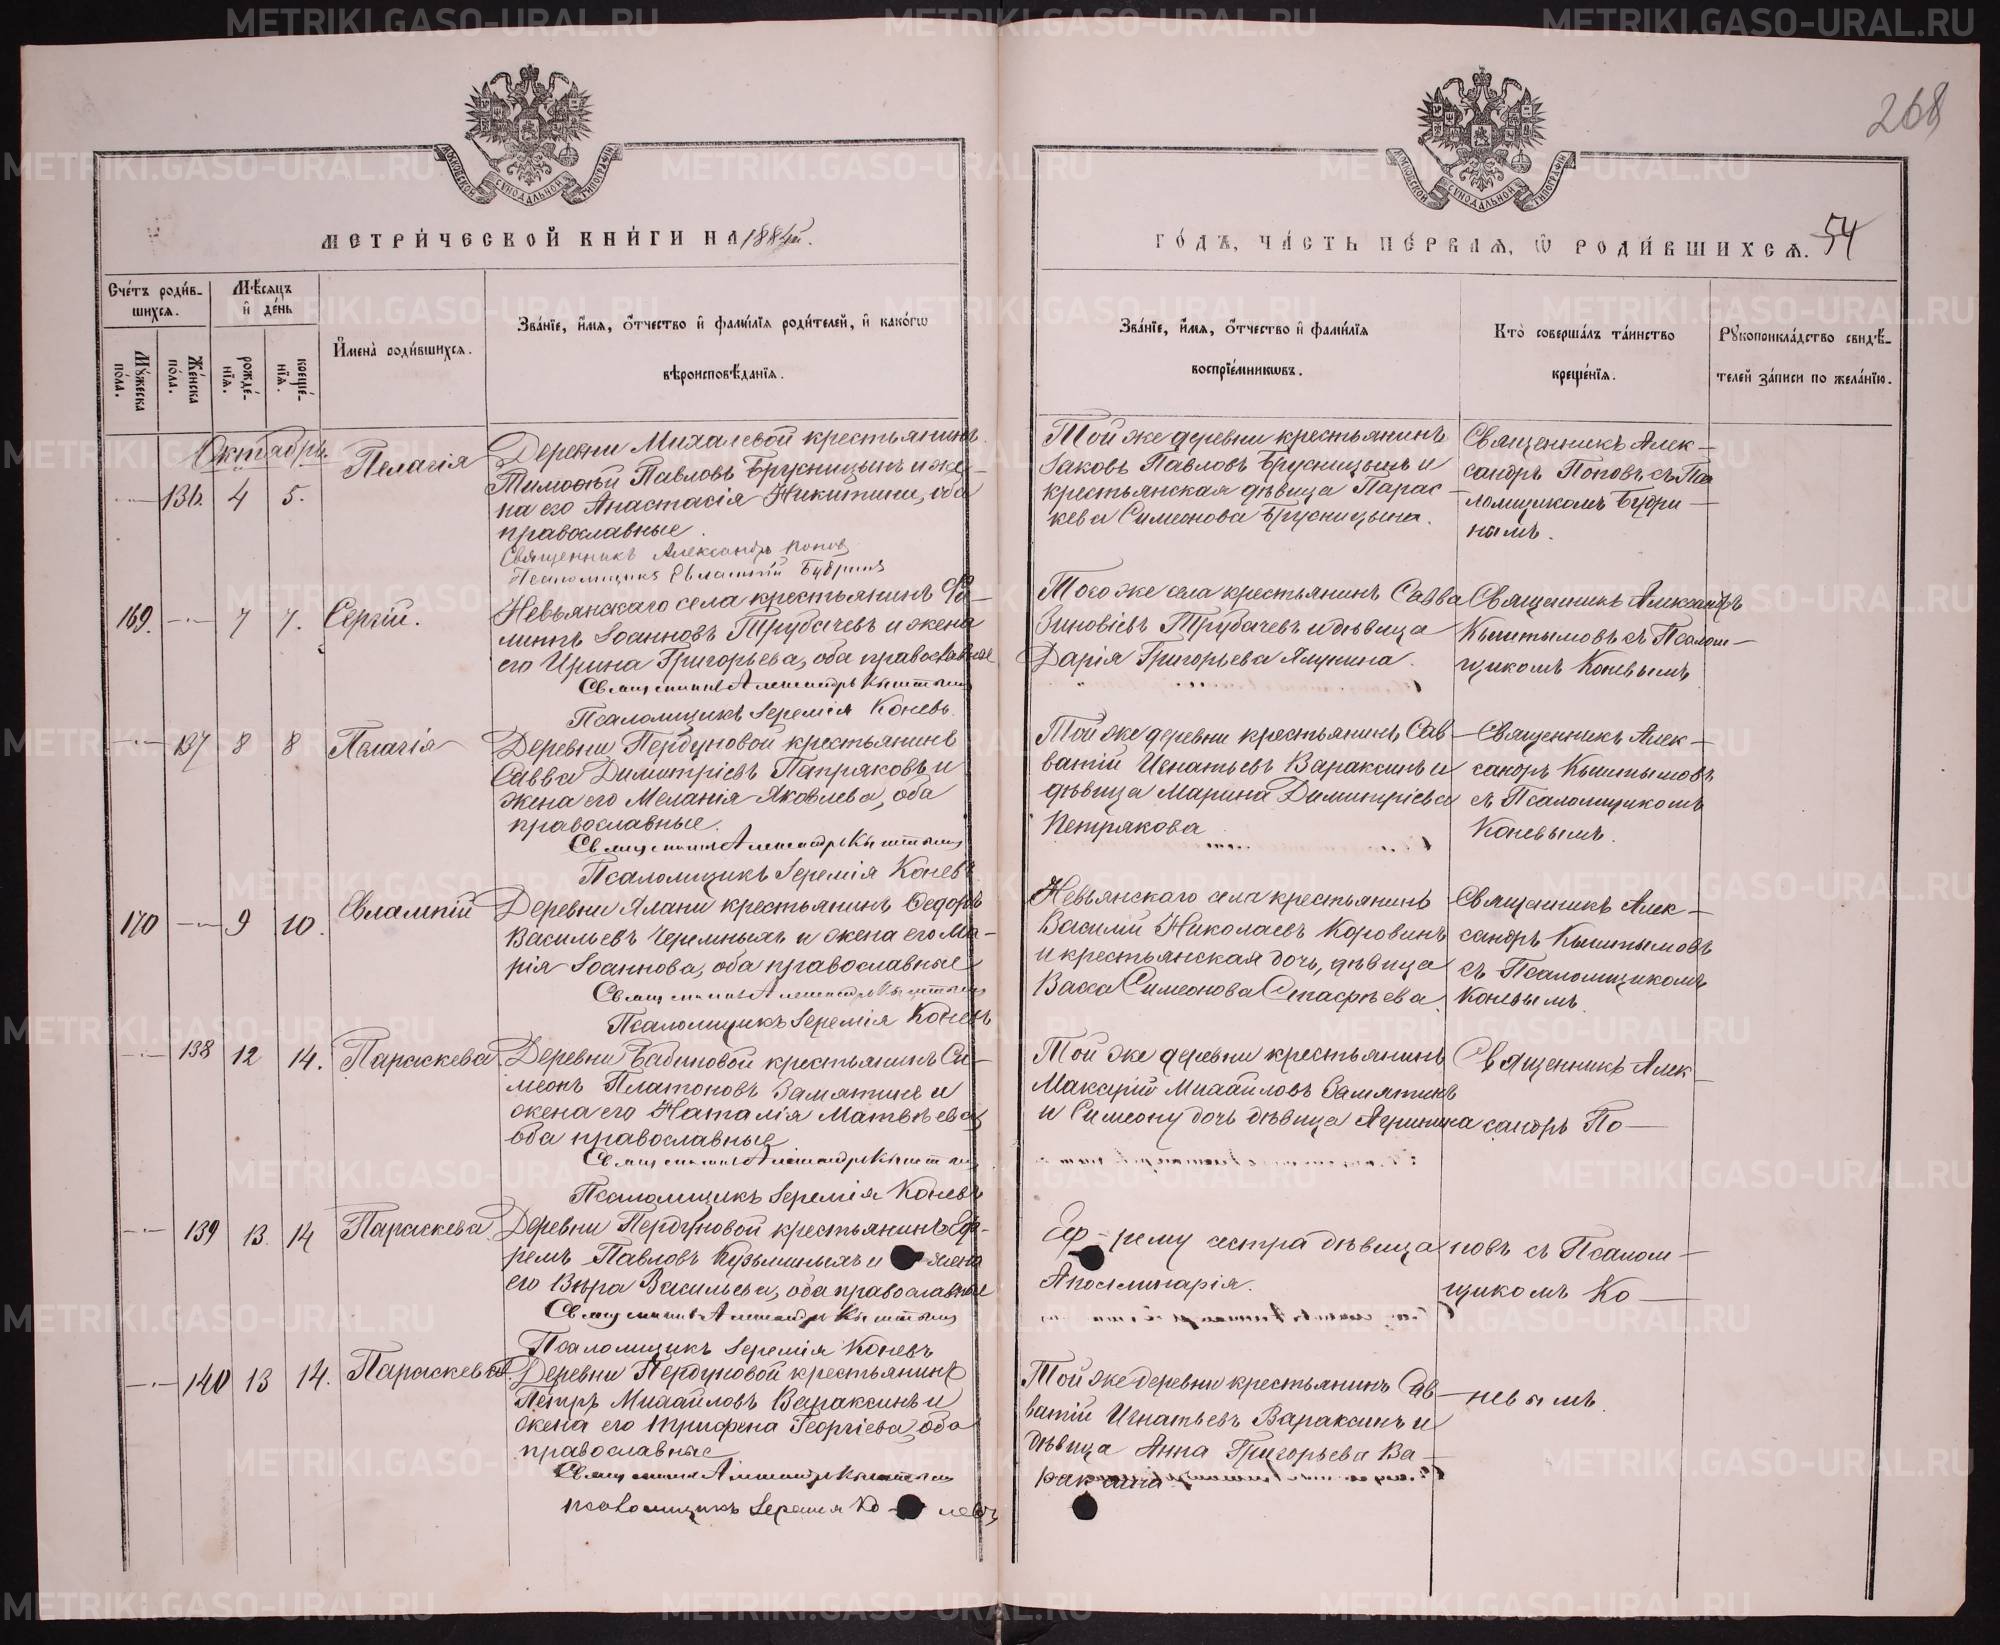 268
МОСКОВСКОЙ СѴНОДАЛЬНОЙ ТИПОГРАФІИ
МОСКОВСКОЙ СѴНОДАЛЬНОЙ ТИПОГРАФІИ
МЕТРИ́ЧЕСКОЙ КНИ́ГИ НА 1884й.
ГО́ДЪ, ЧА́СТЬ ПЕ́РВАЯ, Ѿ РОДИ́ВШИХСѦ. 54
Сче́тъ роди́в-
шихся.
Мѣ́сяцъ
и҆ де́нь
И҆мена̀ роди́вшихся.
Зва́нїе, и҆́мя, о҆́тчество и҆ фами́лїя роди́телей, и҆ како́гѡ
вѣроисповѣ́данїя.
Мꙋ́жеска по́ла.
Же́нска по́ла.
рожде́-
нїя.
креще́-
нїя.
Зва́нїе, и҆́мя, о҆́тчество и҆ фами́лїя
воспрїе́мникѡвъ.
Кто̀ соверша́лъ та́инство
креще́нїя.
Рꙋкоприкла́дство свидѣ́-
телей за́писи по жела́нїю.
Октябрь
136. 4 5. Пелагія
Деревни Михалевой крестьянинъ
Тимоѳей Павловъ Брусницынъ и же-
на его Анастасія Никитина, оба
православные.
Священникъ Александръ Попов
Псаломщикъ Евлампій Бубринъ
Той же деревни крестьянинъ
Іаковъ Павловъ Брусницынъ и
крестьянская дѣвица Парас-
кева Симеонова Брусницына.
Священникъ Алек-
сандръ Поповъ съ Пса
ломщикомъ Бубри-
нымъ.
169. 7 7. Сергій.
Невьянскаго села крестьянинъ Фи-
липпъ Іоанновъ Трубачевъ и жена
его Ирина Григорьева, оба православные
Священникъ Александръ Кыштымовъ
Псаломщикъ Іеремія Коневъ.
Того же села крестьянинъ Савва
Зиновіевъ Трубачевъ и дѣвица
Дарія Григорьева Ялунина.
Священникъ Александръ
Кыштымовъ съ Псалом-
щикомъ Коневымъ
137 8 8 Пелагія
Деревни Пердуновой крестьянинъ
Савва Димитріевъ Петряковъ и
жена его Меланія Яковлева, оба
православные.
Священникъ Александръ Кыштымовъ
Псаломщикъ Іеремія Коневъ
Той же деревни крестьянинъ Сав-
ватій Игнатьевъ Вараксинъ и
дѣвица Марина Димитріева
Петрякова
Священникъ Алек-
сандръ Кыштымовъ
съ Псаломщикомъ
Коневымъ.
170 9 10. Евлампій
Деревни Ялани крестьянинъ Ѳедоръ
Васильевъ Черемныхъ и жена его Ма-
рія Іоаннова, оба православные
Священникъ Александръ Кыштымовъ
Псаломщикъ Іеремія Коневъ
Невьянскаго села крестьянинъ
Василій Николаевъ Коровинъ
и крестьянская дочь, дѣвица
Васса Симеонова
Священникъ Алек-
сандръ Кыштымовъ
съ Псаломщикомъ
Коневымъ.
138 12 14. Параскева.
Деревни Бабиновой крестьянинъ Си-
меонъ Платоновъ Замятинъ и
жена его Наталія Матвѣева,
оба православные
Священникъ Александръ Кыштымовъ
Псаломщикъ Іеремія Коневъ
Той же деревни крестьянинъ
Макарій Михайловъ Замятинъ
и Симеону дочь дѣвица
Священникъ Алек-
сандръ По-
139 13. 14 Параскева
Деревни Пердуновой крестьянинъ Еф-
ремъ Павловъ Кузьминыхъ и жена
его Вѣра Васильева, оба православные
Священникъ Александръ Кыштымовъ
Псаломщикъ Іеремія Коневъ
Еф-рему сестра дѣвица
Аполлинарія.
повъ съ Псалом-
щикомъ Ко-
140 13 14. Параскева
Деревни Пердуновой крестьянинъ
Петръ Михайловъ Вараксинъ и
жена его Трифена Георгіева, оба
православные
Священникъ Александръ Кыштымовъ
псаломщикъ Іеремия Ко-невъ
Той же деревни крестьянинъ Сав-
ватій Игнатьевъ Вараксинъ и
дѣвица Анна Григорьева Ва-
раксина
невымъ.